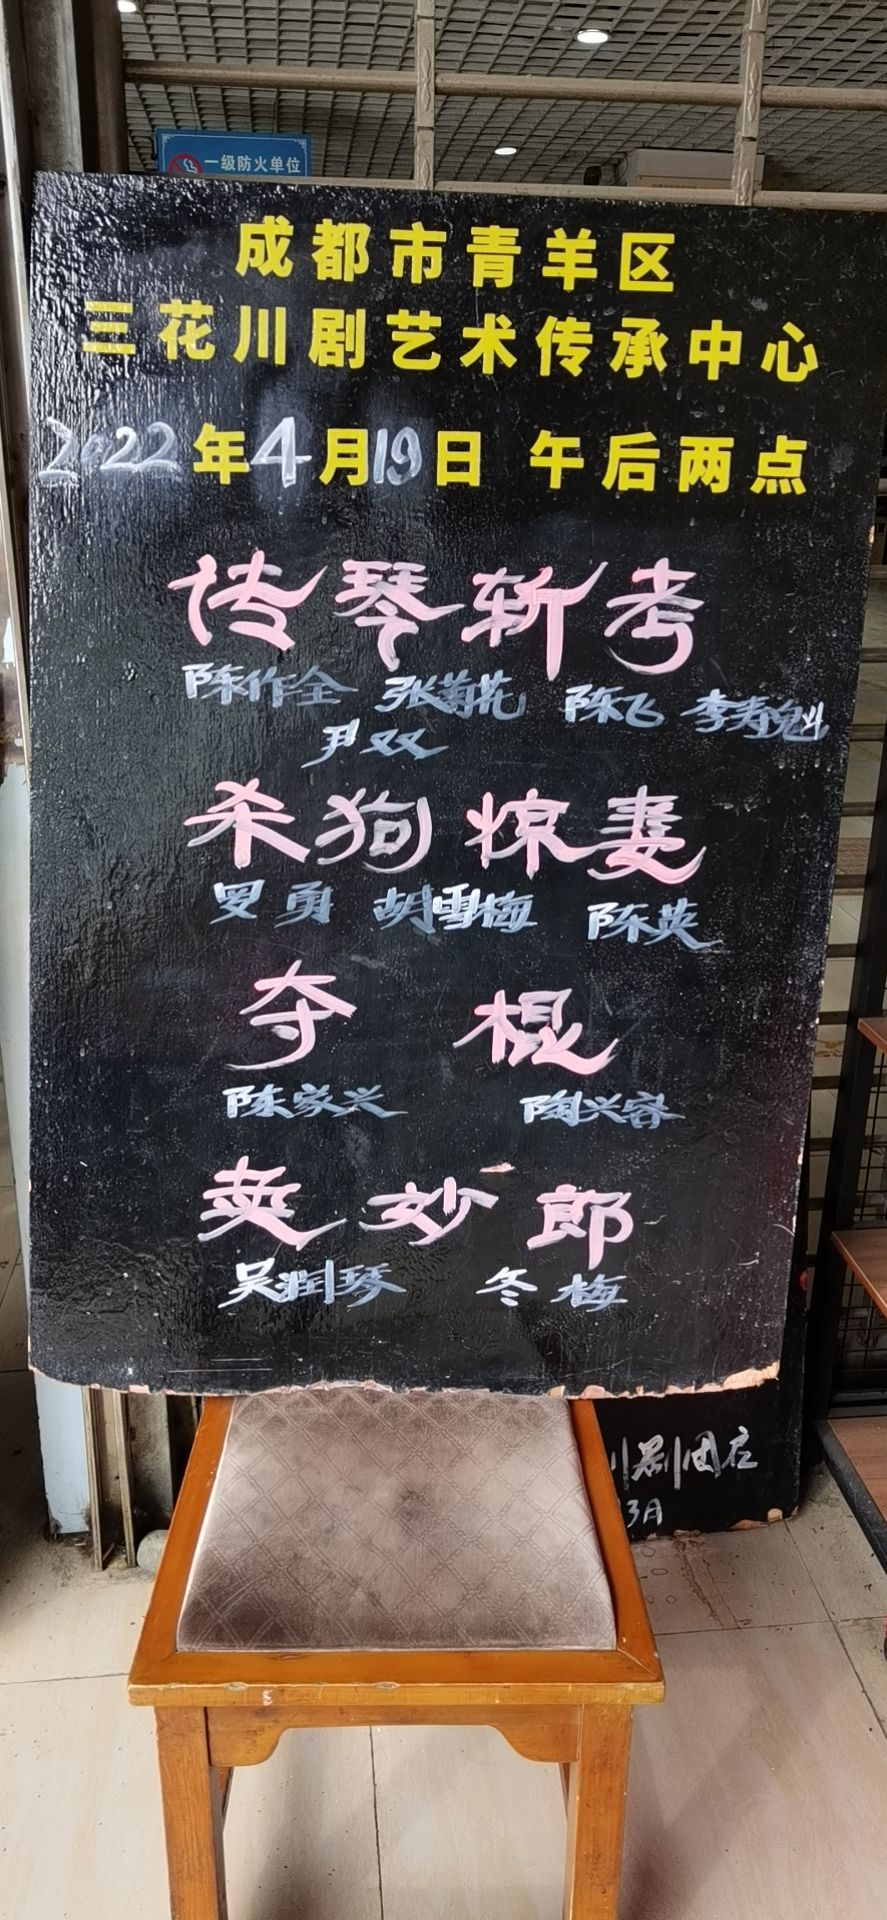 一级防火单位
成都市青羊区
三花川剧艺术传承中心
2022年4月19日 午后两点
传琴斩考
陈作全 张菊花 陈飞 李寿魁
尹双
杀狗惊妻
罗勇 胡雪梅 陈英
夺棍
陈家兴 陶兴容
卖妙郎
吴润琴 冬梅
川剧团在
3月